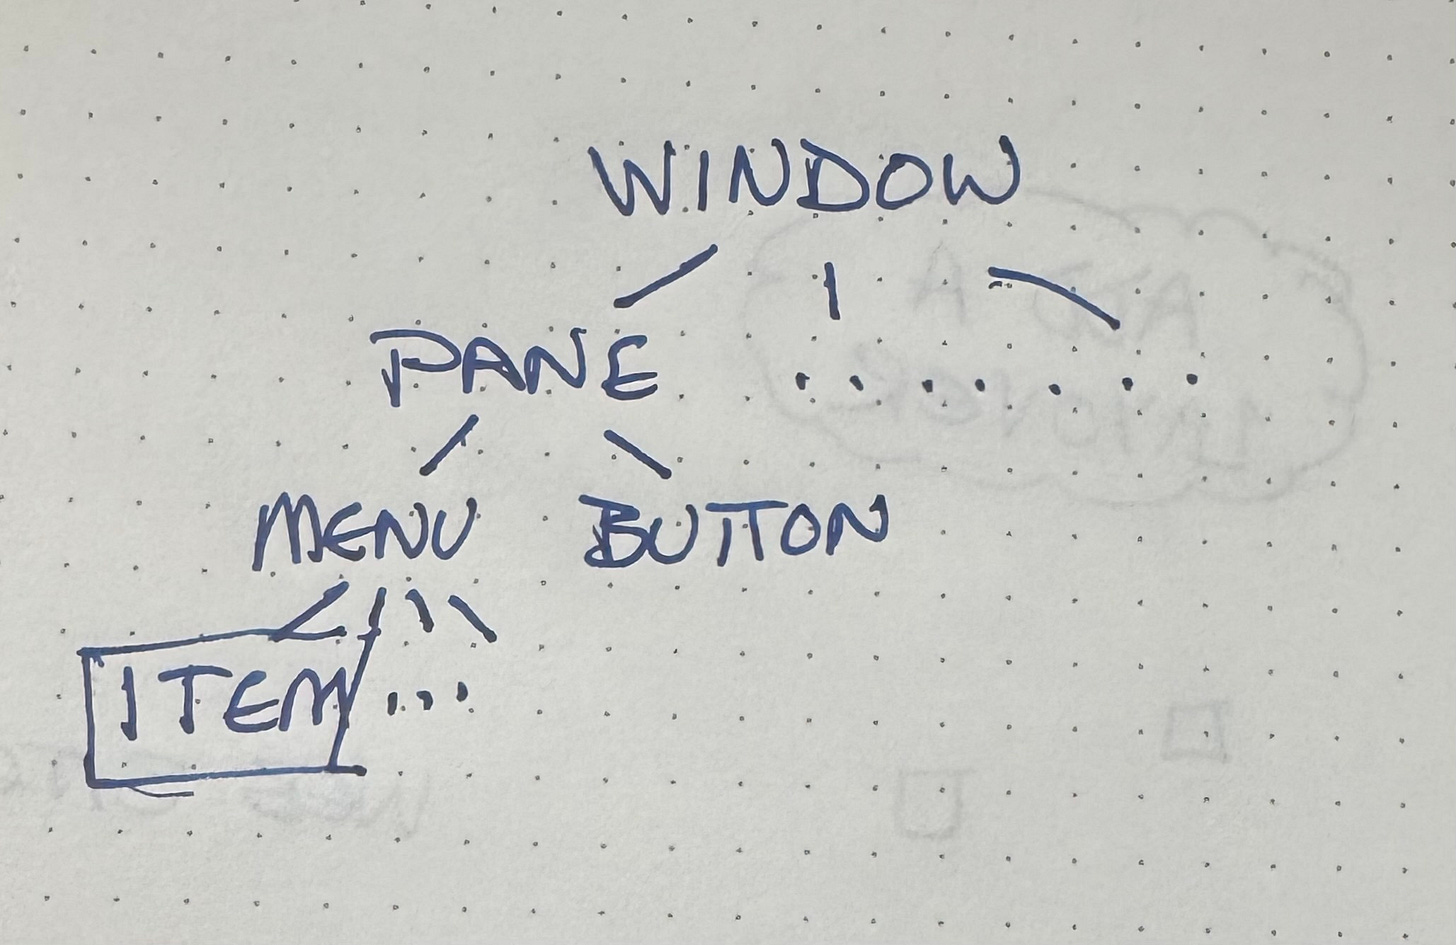 WINDOW
PANE .......
MENU BUTTON
ITEM ...